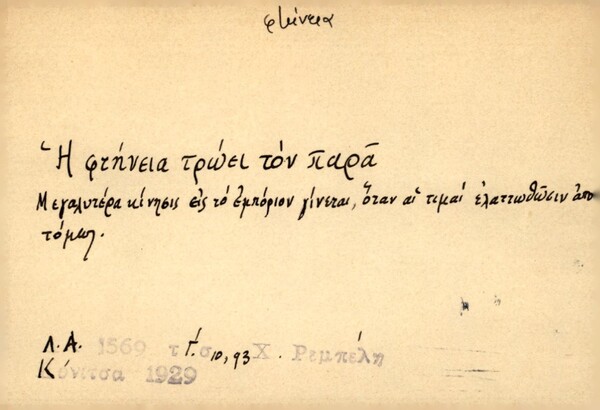 φτήνεια
Ἡ φτήνεια τρώει τὸν παρᾶ
Μεγαλυτέρα κίνησις εἰς τὸ ἐμπόριον γίνεται, ὅταν αἱ τιμαί ἐλαττωθῶσιν ἀπο
τόμως.
Λ.Α. 1569 τ. Γ. σ. 10, 93. Χ. Ρεμπέλη
Κόνιτσα 1929